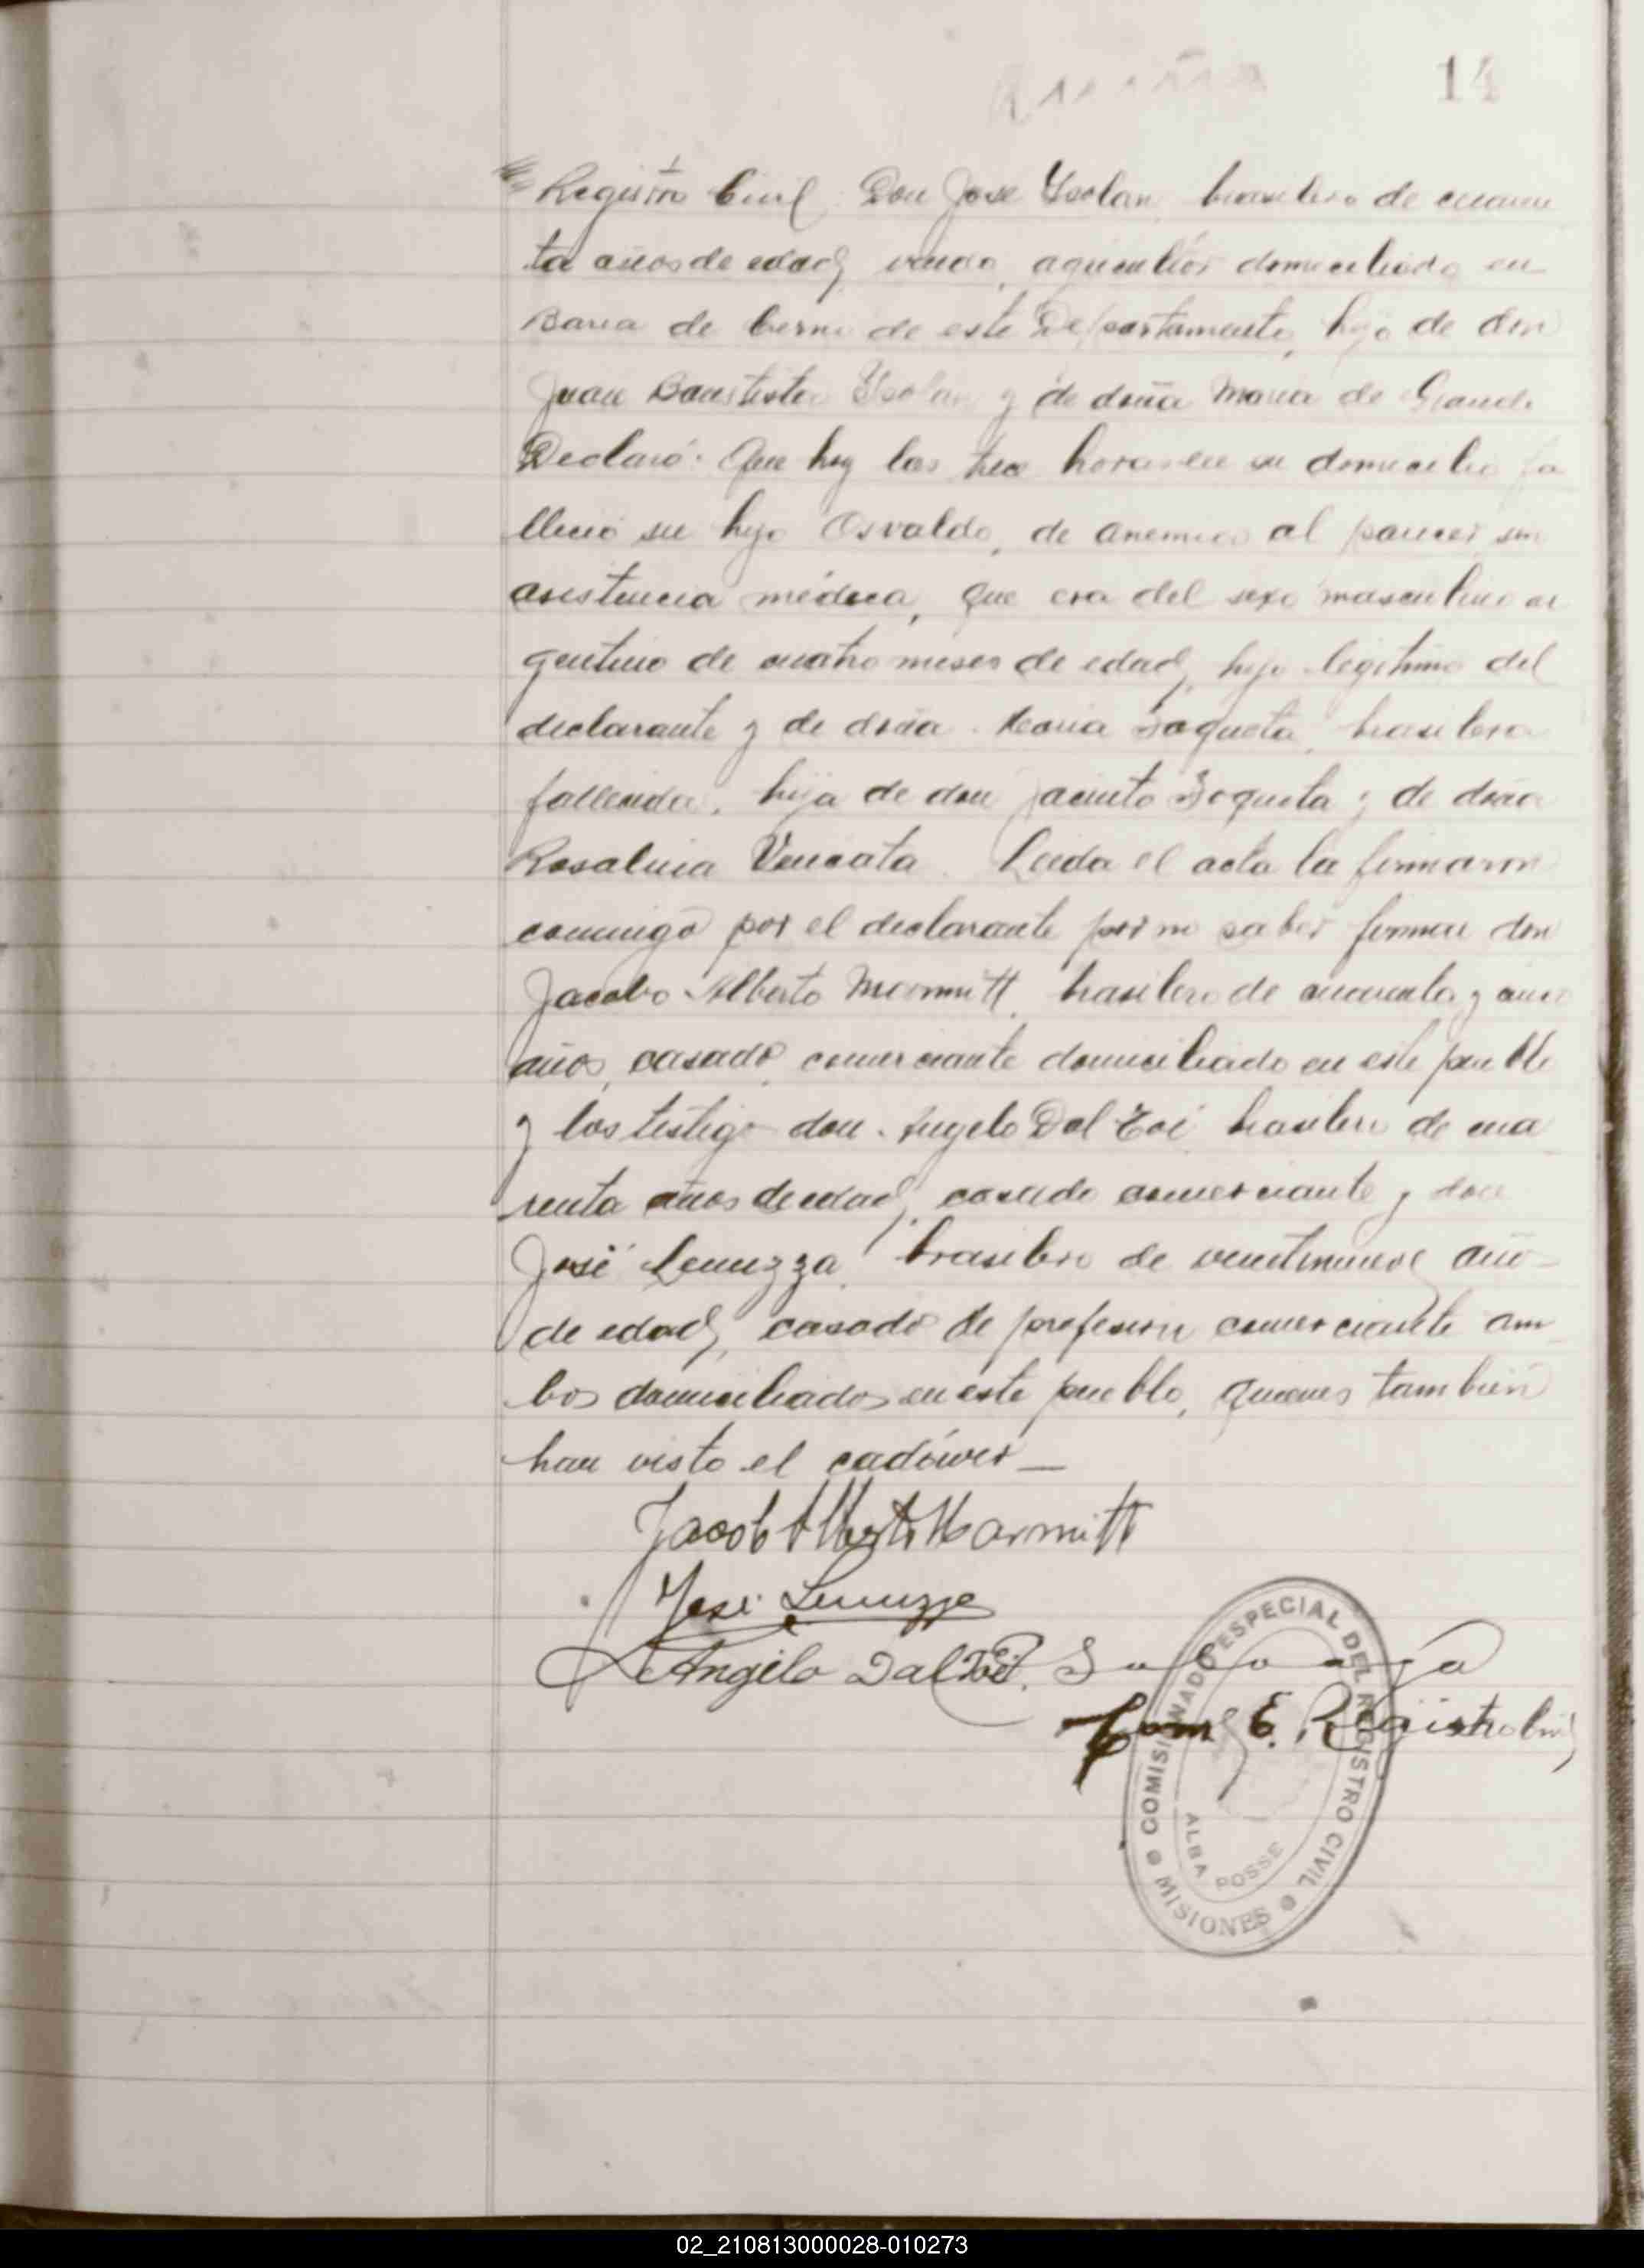 14
Registro Civil. Don Jose Ysolan, brasilero de cincuen
ta años de edad, viudo, agricultor domiciliado en
de este Departamento, hijo de don
Juan Bautista Ysolan y de doña Maria de Grandi
Declaró: Que hoy las trece horas en su domicilio fa
lleció su hijo Osvaldo, de anemia al parecer sin
asistencia médica, que era del sexo masculino ar
gentino de cuatro meses de edad, hijo legitimo del
declarante y de doña Maria Soqueta, brasilera
fallecida, hija de don Jacinto Soqueta y de doña
Rosalina. Leida el acta la firmaron
conmigo por el declarante por no saber firmar don
Jacobo Alberto Marmitt, brasilero de cincuenta y cinco
años, casado, comerciante domiciliado en este pueblo
y los testigos don Angelo Dal Toé brasilero de cua
renta años de edad, casado comerciante y don
José Lenuzza, brasilero de veintinueve años
de edad, casado de profesion comerciante am
bos domiciliados en este pueblo, quienes tambien
han visto el cadáver —
Jacob Alberto Marmitt
José Lenuzza
Angelo Dal Toé
E. Registro Civil
COMISIONADO ESPECIAL DEL REGISTRO CIVIL
ALBA POSSE
MISIONES
02_210813000028-010273